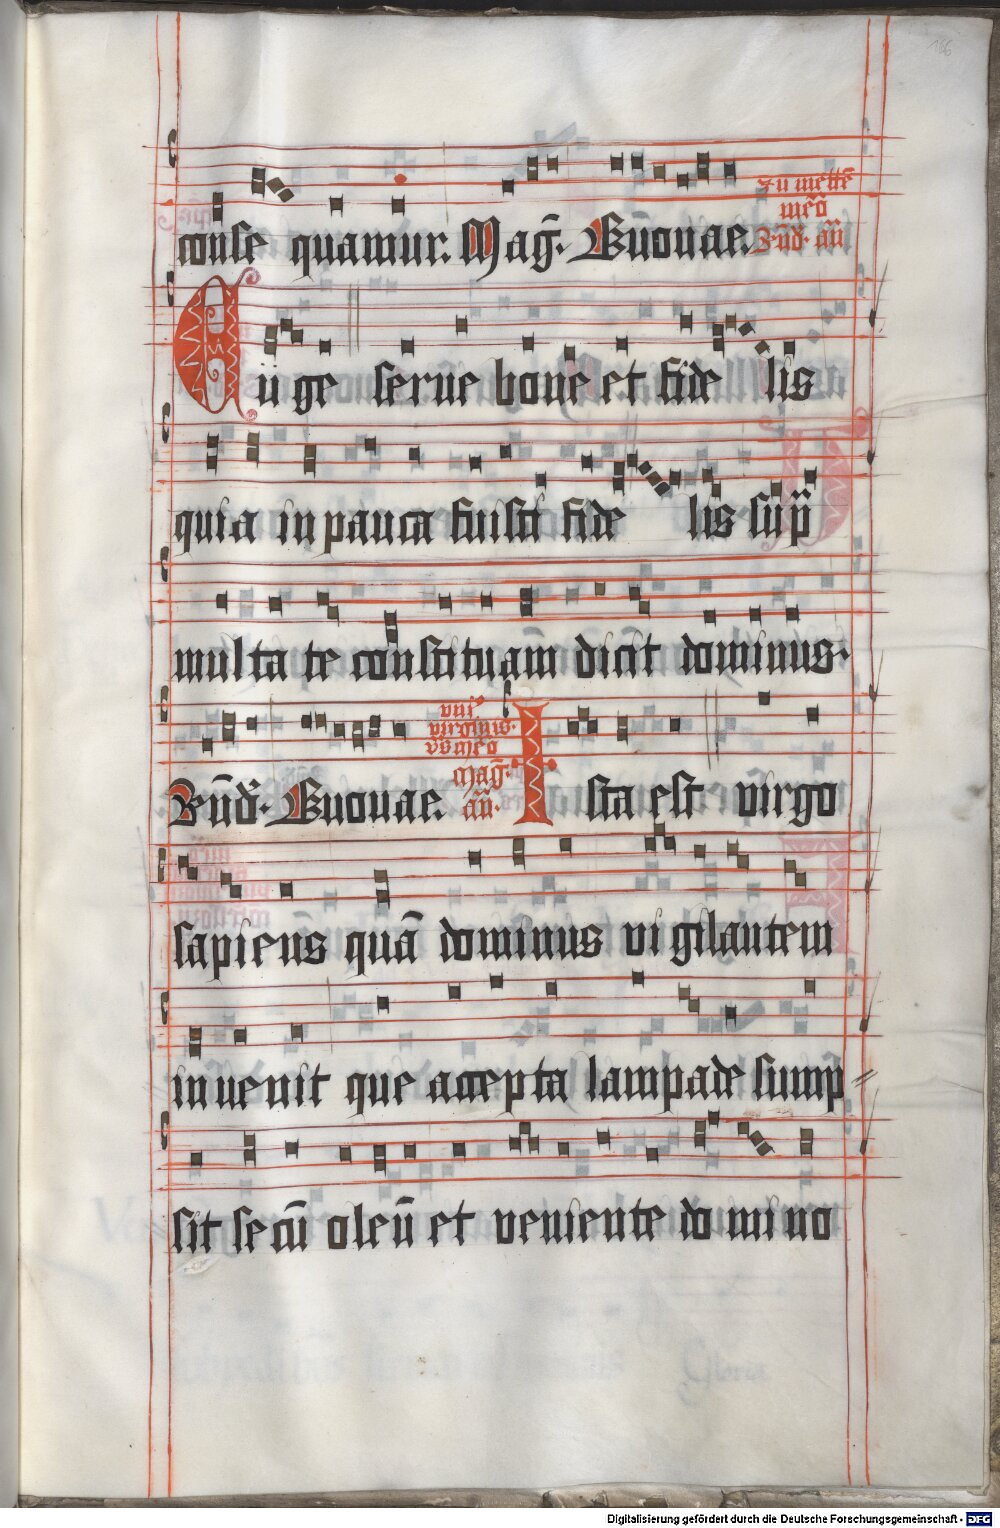 186
conse quamur. Mag̃. Eũouae.
Zu mettẽ
mẽo
Bñd. añ
Eüge serue bone et fide lis
quia in pauca fuisti fide lis sup̈
multa te constituam dicit dominus.
Bñd. Euouae.
virginis.
Mag̃.
añ.
Ista est virgo
sapiens quã dominus vi gilantem
in uenit que accepta lampade sump̃
sit se cũ oleũ et veniente do mi no
Gloria
Digitalisierung gefördert durch die Deutsche Forschungsgemeinschaft - DFG